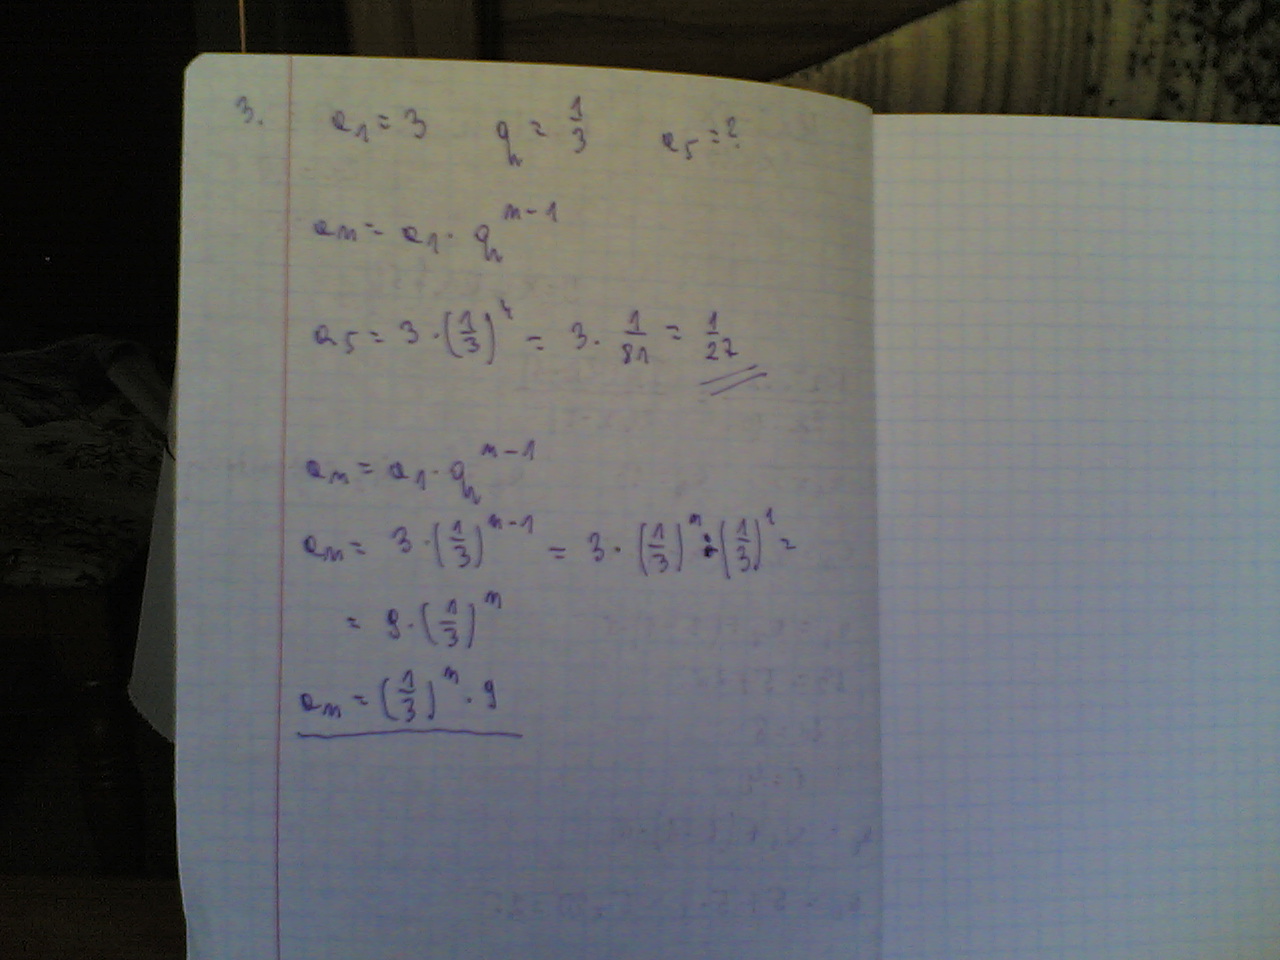 3. a₁ = 3 q = 1/3 a₅ = ?
aₙ = a₁ · q^(n-1)
a₅ = 3 · (1/3)^4 = 3 · 1/81 = 1/27
aₙ = a₁ · q^(n-1)
aₙ = 3 · (1/3)^(n-1) = 3 · (1/3)^n : (1/3)^1 =
= 9 · (1/3)^n
aₙ = (1/3)^n · 9